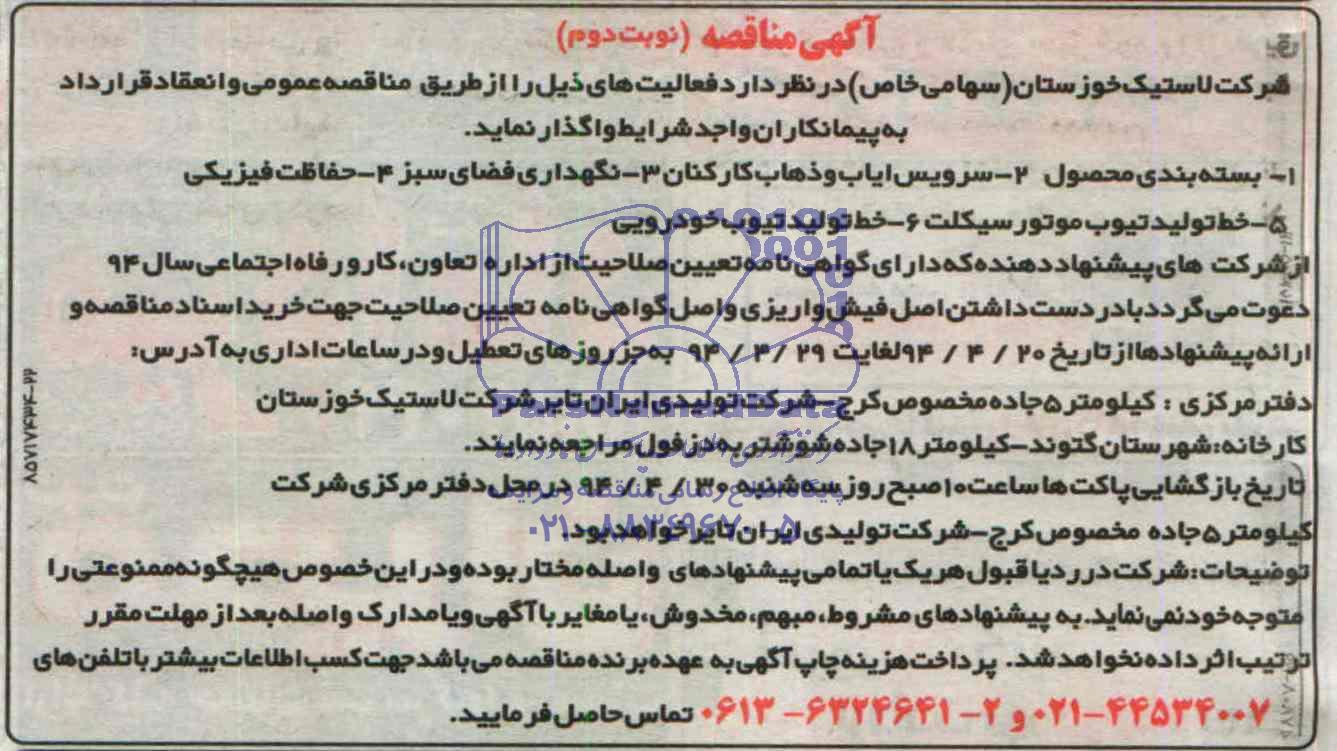 آگهی مناقصه (نوبت دوم)
شرکت لاستیک خوزستان(سهامی خاص)در نظر دارد فعالیت های ذیل را از طریق مناقصه عمومی و انعقاد قرار داد
به پیمانکاران واجد شرایط واگذار نماید.
۱- بسته بندی محصول ۲-سرویس ایاب و ذهاب کارکنان ۳-نگهداری فضای سبز ۴-حفاظت فیزیکی
۵-خط تولید تیوب موتور سیکلت ۶-خط تولید تیوب خودرویی
از شرکت های پیشنهاد دهنده که دارای گواهی نامه تعیین صلاحیت از اداره تعاون، کار و رفاه اجتماعی سال ۹۴
دعوت می گردد با در دست داشتن اصل فیش واریزی و اصل گواهی نامه تعیین صلاحیت جهت خرید اسناد مناقصه و
ارائه پیشنهادها از تاریخ ۲۰ / ۴ / ۹۴ لغایت ۲۹ /۴ / ۹۴ به جز روزهای تعطیل و در ساعات اداری به آدرس:
دفتر مرکزی : کیلومتر ۵ جاده مخصوص کرج-شرکت تولیدی ایران تایر شرکت لاستیک خوزستان
کارخانه: شهرستان گتوند-کیلومتر ۱۸ جاده شوشتر به دزفول مراجعه نمایند.
تاریخ بازگشایی پاکت ها ساعت ۱۰ صبح روز سه شنبه ۳۰ / ۴ / ۹۴ در محل دفتر مرکزی شرکت
کیلومتر ۵ جاده مخصوص کرج-شرکت تولیدی ایران تایر خواهد بود.
توضیحات: شرکت در رد یا قبول هر یک یا تمامی پیشنهادهای واصله مختار بوده و در این خصوص هیچگونه ممنوعتی را
متوجه خود نمی نماید. به پیشنهادهای مشروط، مبهم، مخدوش، یا مغایر با آگهی و یا مدارک واصله بعد از مهلت مقرر
ترتیب اثر داده نخواهد شد. پرداخت هزینه چاپ آگهی به عهده برنده مناقصه می باشد جهت کسب اطلاعات بیشتر با تلفن های
۰۲۱-۴۴۵۳۴۰۰۷ و ۲- ۶۳۲۴۶۴۱- ۰۶۱۳ تماس حاصل فرمایید.
۸۵۷۱۷۴۳۴-۲۲
ParsNamadData
پایگاه اطلاع رسانی مناقصه و مزایده
۰۲۱-۸۸۳۴۹۶۷۰-۵